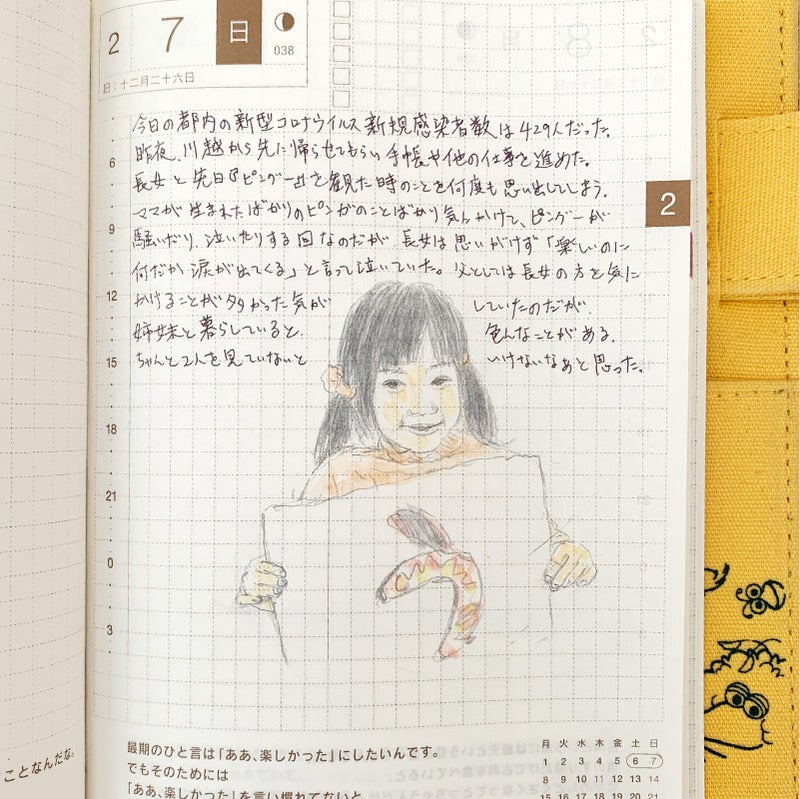 2 7 日
038
旧:十二月二十六日
今日の都内の新型コロナウイルス新規感染者数は429人だった。
昨夜、川越から先に帰らせてもらい手帳や他の仕事を進めた。
長女と先日『ピングー』を観た時のことを何度も思い出してしまう。
ママが生まれたばかりのピンガのことばかり気にかけて、ピングーが
騒いだり、泣いたりする回なのだが、長女は思いがけず「楽しいのに
何だか涙が出てくる」と言って泣いていた。父としては長女の方を気に
かけることが多かった気が していたのだが、
姉妹と暮らしていると、 色んなことがある。
ちゃんと2人を見ていないと いけないなあと思った。
2
6
9
12
15
18
21
0
3
う
最期のひと言は「ああ、楽しかった」にしたいんです。
でもそのためには
「ああ、楽しかった」を言い慣れてないと
ことなんだな。
月 火 水 木 金 土 日
1 2 3 4 5 6 7
8 9 10 11 12 13 14
15 16 17 18 19 20 21